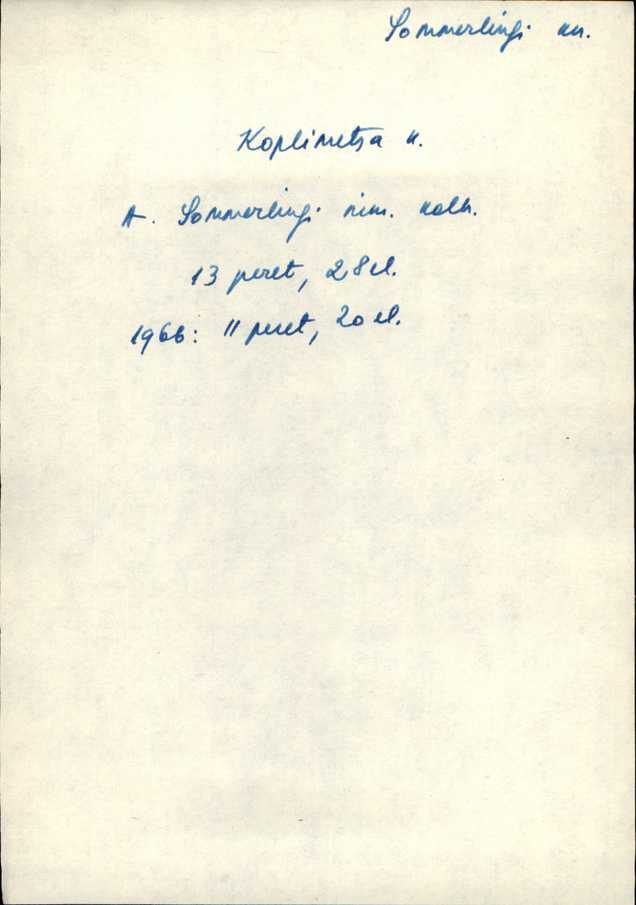 Sommerlingi kn.
Koplimetsa k.
A. Sommerlingi nim. kolh.
13 peret, 28 el.
1966: 11 peret, 20 el.